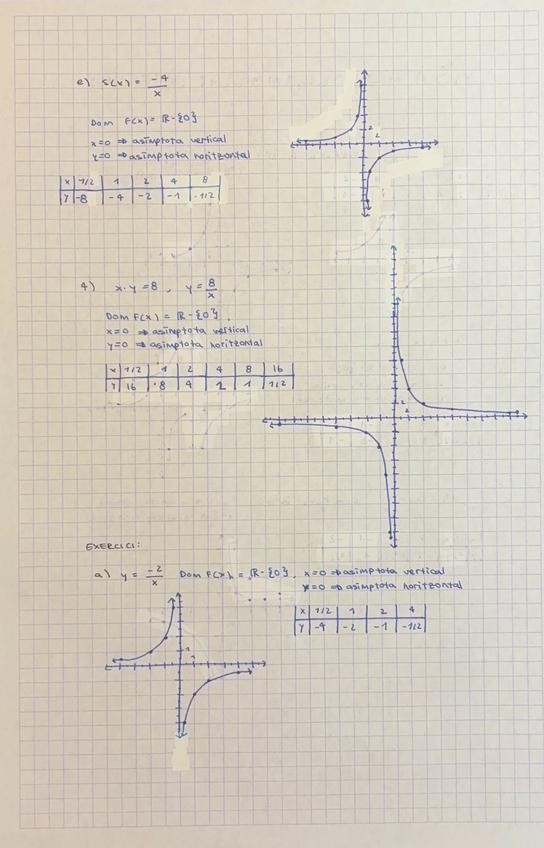 e) f(x) = -4/x
Dom F(x) = ℝ-{0}
x=0 ⇒ asímptota vertical
y=0 ⇒ asímptota horitzontal
x | 1/2 | 1 | 2 | 4 | 8
y | -8 | -4 | -2 | -1 | -1/2
4) x·y=8, y = 8/x
Dom F(x) = ℝ-{0}.
x=0 ⇒ asímptota vertical
y=0 ⇒ asímptota horitzontal
x | 1/2 | 1 | 2 | 4 | 8 | 16
y | 16 | 8 | 4 | 2 | 1 | 1/2
EXERCICI:
a) y = -2/x Dom F(x) = ℝ-{0}. x=0 ⇒ asímptota vertical
y=0 ⇒ asímptota horitzontal
x | 1/2 | 1 | 2 | 4
y | -4 | -2 | -1 | -1/2